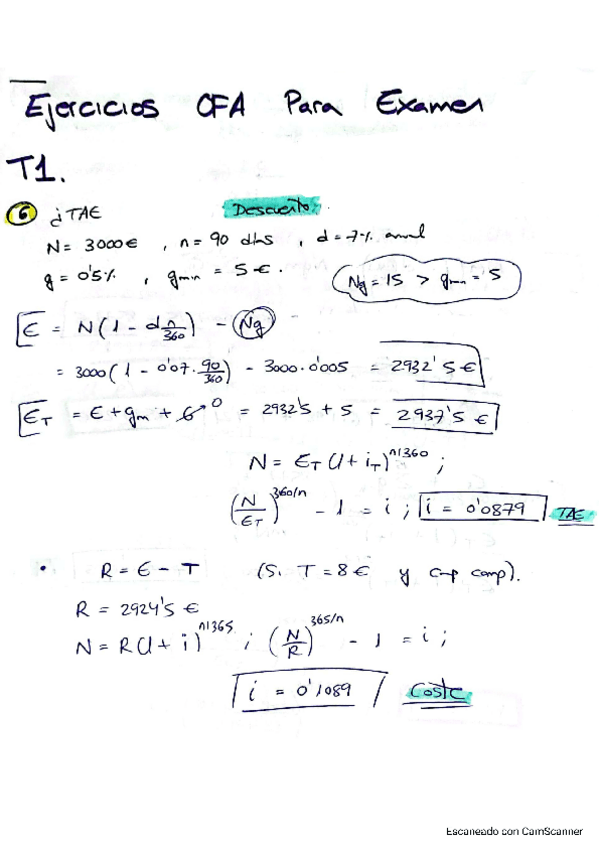 Ejercicios OFA Para Examen
T1.
6 ¿TAE Descuento.
N = 3000 € , n = 90 días , d = 7% anual
g = 0'5% , gmin = 5 €. Ng = 15 > gmin = 5
E = N(1 - d n/360) - Ng
= 3000(1 - 0'07 · 90/360) - 3000 · 0'005 = 2932'5 €
ET = E + gm + G→0 = 2932'5 + 5 = 2937'5 €
N = ET (1 + iT)^n/360 ;
(N/ET)^360/n - 1 = i ; i = 0'0879 TAE
• R = E - T (Si T = 8 € y comp).
R = 2924'5 €
N = R(1 + i)^n/365 ; (N/R)^365/n - 1 = i ;
i = 0'1089 Coste
Escaneado con CamScanner